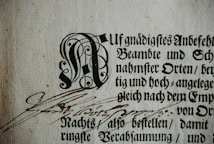 AUf gnädigstes Anbefehl
Beambte und Sch
nahmster Orten/ be
tig und hoch-angelege
gleich nach dem Emp
von Or
Nachts/ also bestellen/ damit
ringste Verabsaumung/ und